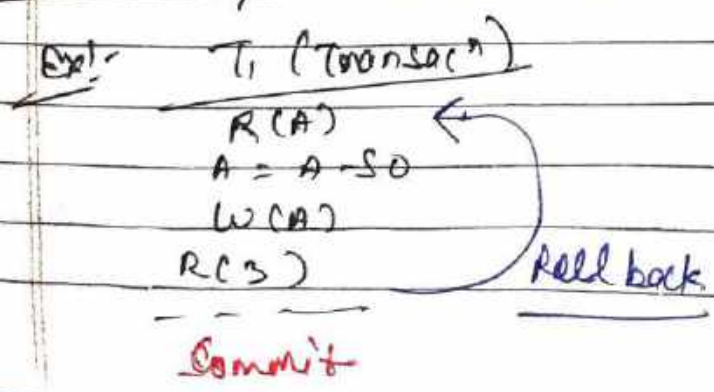 Exp:- T1 (Transacn)
R(A)
A = A - 50
W(A)
R(B)
Roll back
Commit